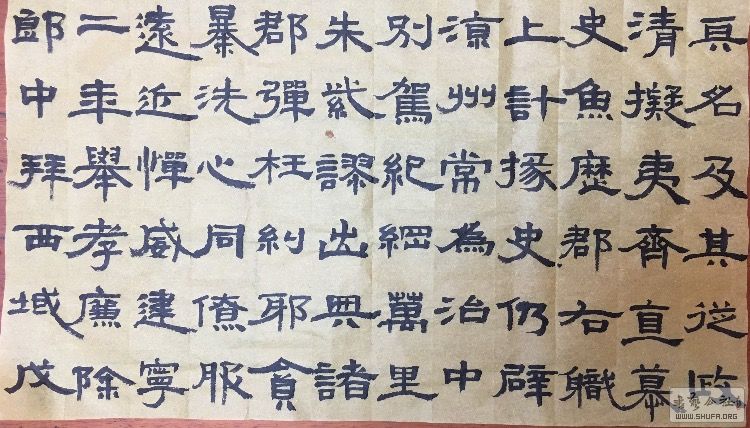 其名及其從政
清擬夷齊直慕
史魚歷郡右職
上計掾史仍辟
涼州常為治中
別駕紀綱萬里
朱紫謬出典諸
郡彈枉糾耶貪
暴洗心同僚服
遠近憚威建寧
二年舉孝廉除
郎中拜西域戊
WWW.SHUFA.ORG